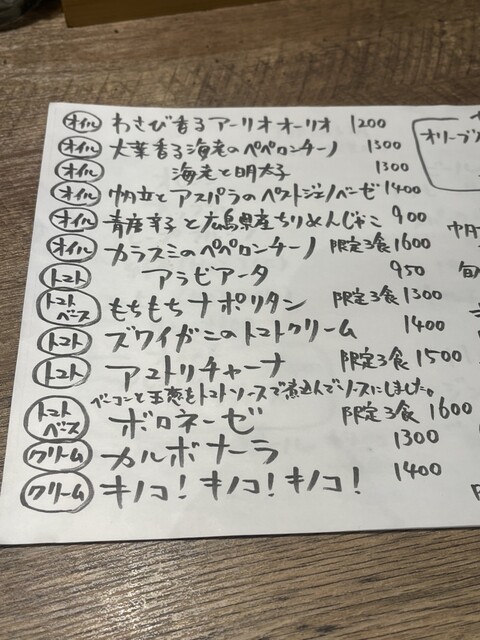 オイル わさび香るアーリオオーリオ 1200
オイル 大葉香る海老のペペロンチーノ 1300
オイル 海老と明太子 1300
オイル 帆立とアスパラのペストジェノベーゼ 1400
オイル 青唐辛子と広島県産ちりめんじゃこ 900
オイル カラスミのペペロンチーノ 限定3食 1600
トマト アラビアータ 950
トマトベース もちもちナポリタン 限定3食 1300
トマト ズワイガニのトマトクリーム 1400
トマト アマトリチャーナ 限定3食 1500
ベーコンと玉葱をトマトソースで煮込んでソースにしました。
トマトベース ボロネーゼ 限定3食 1600
クリーム カルボナーラ 1300
クリーム キノコ！キノコ！キノコ！ 1400
オリーブ
帆
旬